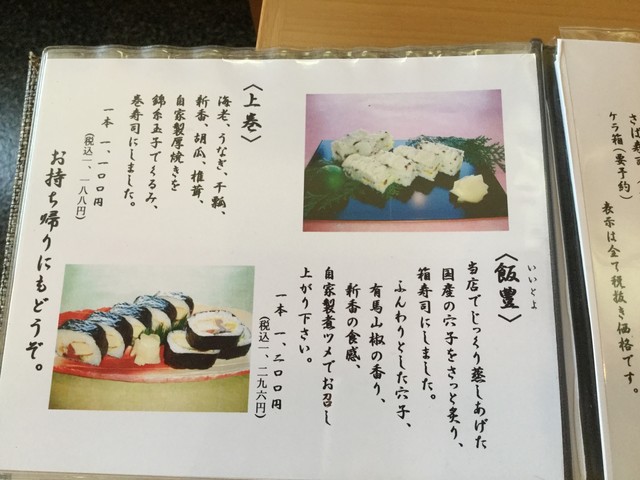 さば寿司
ケラ箱(要予約)
表示は全て税抜き価格です。
いいとよ
〈飯豊〉
当店でじっくり蒸しあげた
国産の穴子をさっと炙り、
箱寿司にしました。
ふんわりとした穴子、
有馬山椒の香り、
新香の食感、
自家製煮ツメでお召し
上がり下さい。
一本 一、二〇〇円
(税込一、二九六円)
〈上巻〉
海老、うなぎ、干瓢、
新香、胡瓜、椎茸、
自家製厚焼きを
錦糸玉子でくるみ、
巻寿司にしました。
一本 一、一〇〇円
(税込一、一八八円)
お持ち帰りにもどうぞ。